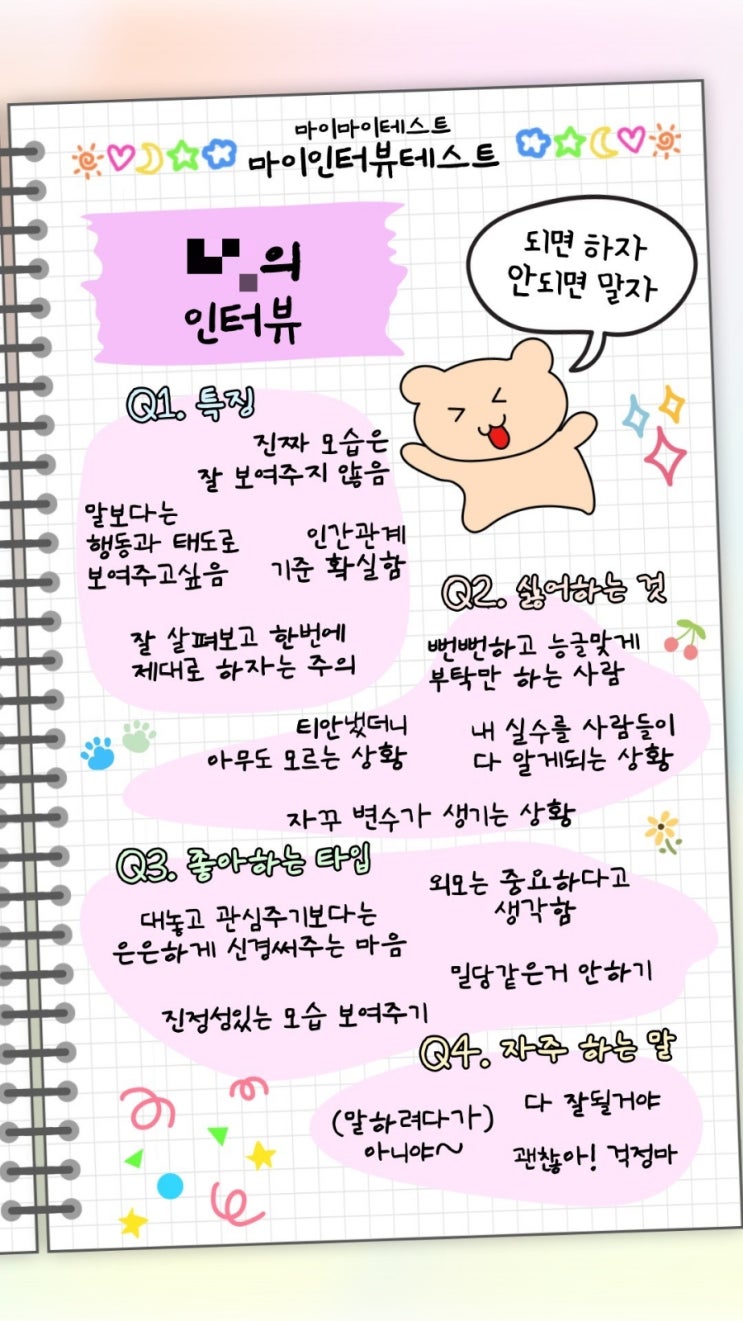 마이마이테스트
마이인터뷰테스트
되면 하자
안되면 말자
의
인터뷰
Q1. 특징
진짜 모습은
잘 보여주지 않음
말보다는
행동과 태도로
보여주고싶음
인간관계
기준 확실함
잘 살펴보고 한번에
제대로 하자는 주의
Q2. 싫어하는 것
뻔뻔하고 능글맞게
부탁만 하는 사람
티안냈더니
아무도 모르는 상황
내 실수를 사람들이
다 알게되는 상황
자꾸 변수가 생기는 상황
Q3. 좋아하는 타입
외모는 중요하다고
생각함
대놓고 관심주기보다는
은은하게 신경써주는 마음
밀당같은거 안하기
진정성있는 모습 보여주기
Q4. 자주 하는 말
(말하려다가)
아니야~
다 잘될거야
괜찮아! 걱정마